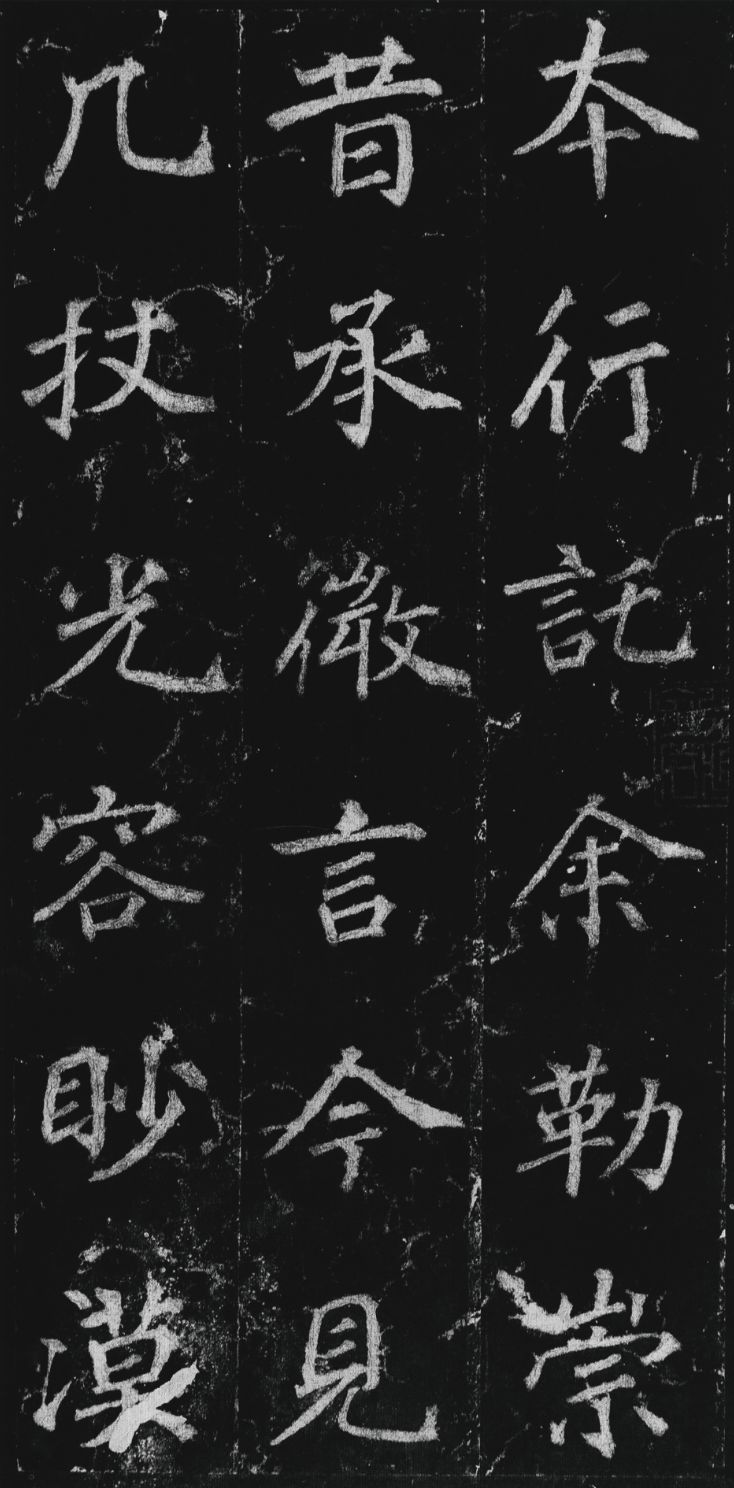 本行託余勒崇
昔承徵言今見
几杖光容眇漠